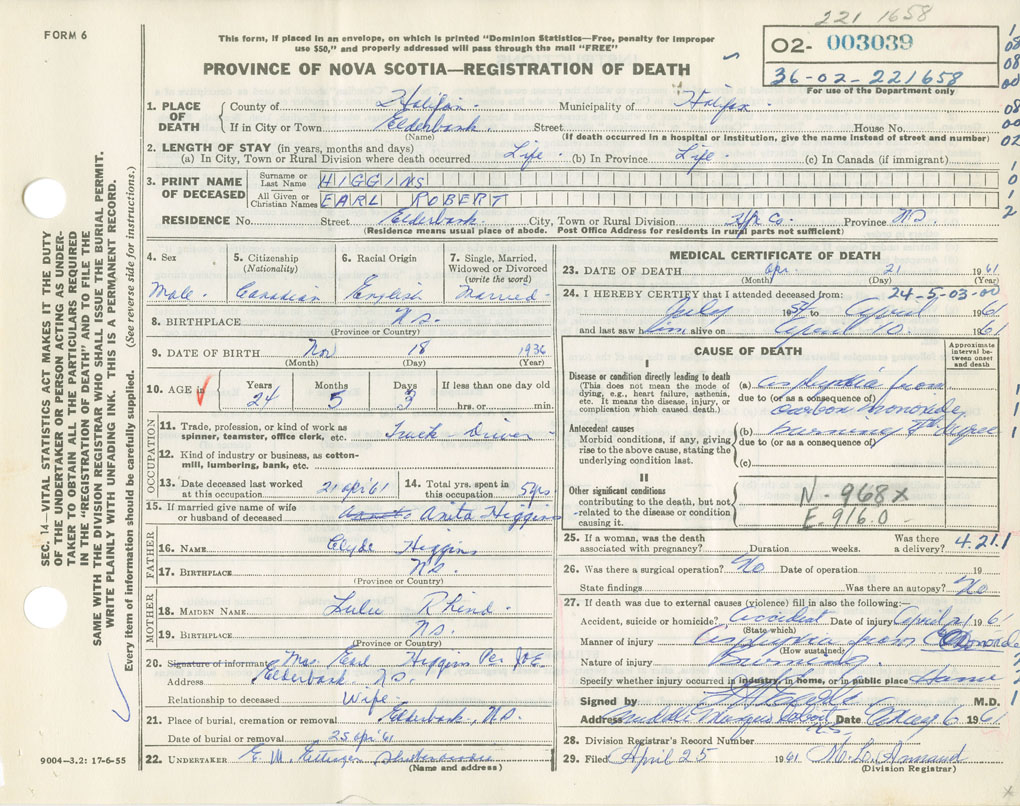 221 1658
FORM 6
This form, if placed in an envelope, on which is printed "Dominion Statistics—Free, penalty for improper
use $50," and properly addressed will pass through the mail "FREE"
PROVINCE OF NOVA SCOTIA—REGISTRATION OF DEATH
O2- 003039
36-02-221658
For use of the Department only
1. PLACE OF DEATH
County of Halifax. Municipality of Halifax.
If in City or Town Elderbank. Street House No.
(Name) (If death occurred in a hospital or institution, give the name instead of street and number)
2. LENGTH OF STAY (in years, months and days)
(a) In City, Town or Rural Division where death occurred Life. (b) In Province Life. (c) In Canada (if immigrant)
3. PRINT NAME OF DECEASED
Surname or Last Name HIGGINS
All Given or Christian Names EARL ROBERT
RESIDENCE No. Street Elderbank. City, Town or Rural Division Hfx Co. Province N.S.
(Residence means usual place of abode. Post Office Address for residents in rural parts not sufficient)
4. Sex
Male.
5. Citizenship
(Nationality)
Canadian
6. Racial Origin
English
7. Single, Married,
Widowed or Divorced
(write the word)
Married.
8. BIRTHPLACE N.S.
(Province or Country)
9. DATE OF BIRTH Nov 18 1936
(Month) (Day) (Year)
10. AGE is
Years Months Days If less than one day old
24 5 3 hrs. or min.
OCCUPATION
11. Trade, profession, or kind of work as
spinner, teamster, office clerk, etc. Truck-Driver
12. Kind of industry or business, as cotton-
mill, lumbering, bank, etc.
13. Date deceased last worked
at this occupation 21 apr '61
14. Total yrs. spent in
this occupation 5 yrs
15. If married give name of wife
or husband of deceased Anita Higgins
FATHER
16. NAME Clyde Higgins
17. BIRTHPLACE N.S.
(Province or Country)
MOTHER
18. MAIDEN NAME Lulu Rhind.
19. BIRTHPLACE N.S.
(Province or Country)
20. Signature of informant Mrs. Earl Higgins Per J.O.E.
Address Elderbank N.S.
Relationship to deceased Wife.
21. Place of burial, cremation or removal Elderbank, N.S.
Date of burial or removal 25 apr '61
22. UNDERTAKER E. M.
(Name and address)
MEDICAL CERTIFICATE OF DEATH
23. DATE OF DEATH Apr. 21 1961
(Month) (Day) (Year)
24. I HEREBY CERTIFY that I attended deceased from: 24-5-03-00
July 1954 to April 1961
and last saw him alive on April 10. 1961
CAUSE OF DEATH
Approximate interval between onset and death
I
Disease or condition directly leading to death
(This does not mean the mode of
dying, e.g., heart failure, asthenia,
etc. It means the disease, injury, or
complication which caused death.)
(a) asphyxia from
due to (or as a consequence of)
carbon monoxide,
Antecedent causes
Morbid conditions, if any, giving
rise to the above cause, stating the
underlying condition last.
(b) Burning degree
due to (or as a consequence of)
(c)
II
Other significant conditions
contributing to the death, but not
related to the disease or condition
causing it.
N-968x
E-916.0
25. If a woman, was the death
associated with pregnancy? Duration weeks. Was there
a delivery? 4.21.1
26. Was there a surgical operation? No Date of operation 19
State findings Was there an autopsy? No
27. If death was due to external causes (violence) fill in also the following:—
Accident, suicide or homicide? Accident Date of injury April 21 1961
(State which)
Manner of injury Asphyxia from CO Monoxide
(How sustained)
Nature of injury Burning.
Specify whether injury occurred in industry, in home, or in public place Home
Signed by M.D.
Address Middle Musquodoboit N.S. Date May 6 1961
28. Division Registrar's Record Number
29. Filed April 25 1961
(Division Registrar)
SEC. 14—VITAL STATISTICS ACT MAKES IT THE DUTY
OF THE UNDERTAKER OR PERSON ACTING AS UNDER-
TAKER TO OBTAIN ALL THE PARTICULARS REQUIRED
IN THE "REGISTRATION OF DEATH" AND TO FILE THE
SAME WITH THE DIVISION REGISTRAR WHO SHALL ISSUE THE BURIAL PERMIT.
WRITE PLAINLY WITH UNFADING INK. THIS IS A PERMANENT RECORD.
Every item of information should be carefully supplied. (See reverse side for instructions.)
9004-3.2: 17-6-55